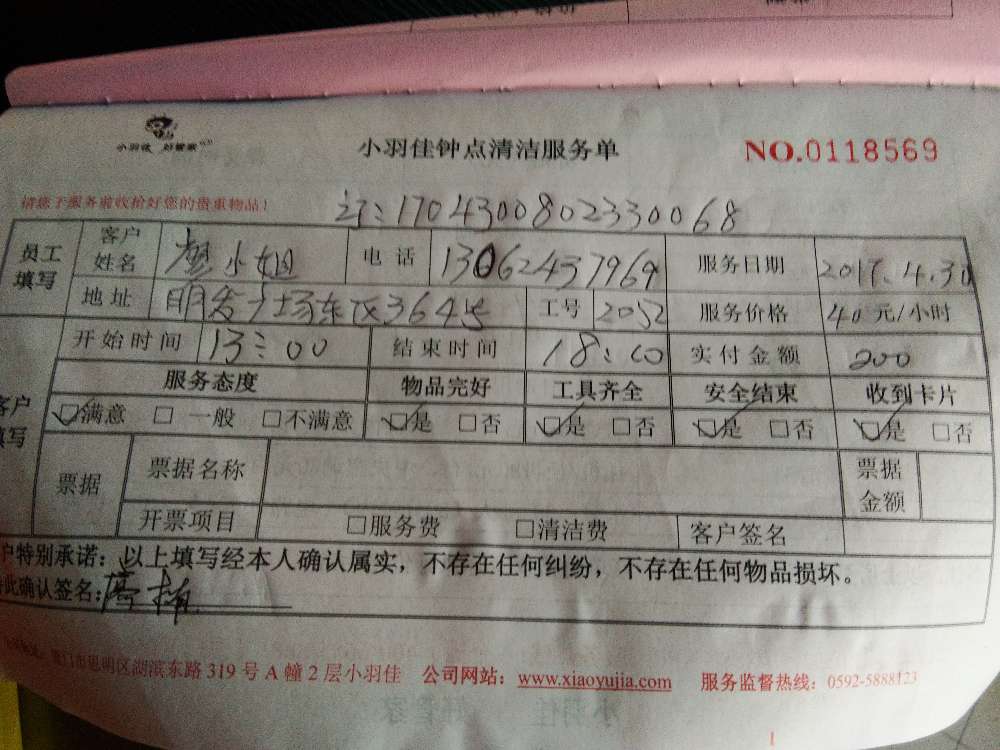 小羽佳 好管家
小羽佳钟点清洁服务单
NO.0118569
请您于服务前收拾好您的贵重物品!
订:17043008023300 68
员工填写 客户姓名 小姐 电话 13062437969 服务日期 2017.4.30
地址 明发广场东区364号 工号 2052 服务价格 40元/小时
开始时间 13:00 结束时间 18:00 实付金额 200
客户填写 服务态度 物品完好 工具齐全 安全结束 收到卡片
☑满意 □一般 □不满意 ☑是 □否 ☑是 □否 ☑是 □否 ☑是 □否
票据 票据名称 票据金额
开票项目 □服务费 □清洁费 客户签名
户特别承诺:以上填写经本人确认属实,不存在任何纠纷,不存在任何物品损坏。
此确认签名:
厦门市思明区湖滨东路319号A幢2层小羽佳 公司网站:www.xiaoyujia.com 服务监督热线:0592-5888123